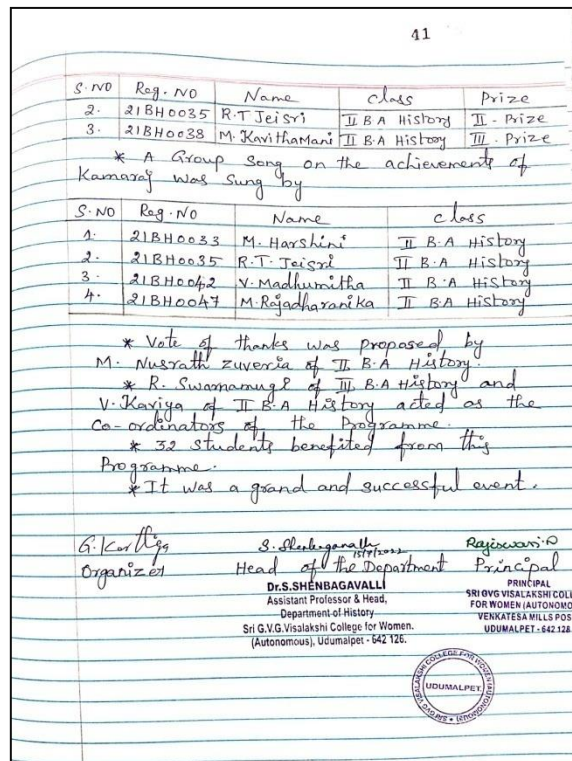 41
S. NO Reg. NO Name Class Prize
2. 21BH0035 R.T Jeisri II B A History II - Prize
3. 21BH0038 M. KavithaMani II B.A History III - Prize
* A Group song on the achievements of
Kamaraj was sung by
S. NO Reg. NO Name class
1. 21BH0033 M. Harshini II B.A History
2. 21BH0035 R.T. Jeisri II B.A History
3. 21BH0042 V. Madhumitha II B.A History
4. 21BH0047 M. Rajadharanika II B.A History
* Vote of thanks was proposed by
M. Nusrath zuveria of II B.A History.
* R. of III B.A History and
V. Kaviya of II B.A History acted as the
Co-ordinators of the Programme.
* 32 students benefited from this
Programme.
* It was a grand and successful event.
G. Karthiga S. 15/7/2022 Rajeswari.P
Organizer Head of the Department Principal
Dr.S.SHENBAGAVALLI
Assistant Professor & Head,
Department of History
Sri G.V.G.Visalakshi College for Women.
(Autonomous), Udumalpet - 642 126.
PRINCIPAL
SRI GVG VISALAKSHI COLL
FOR WOMEN (AUTONOMO
VENKATESA MILLS POS
UDUMALPET - 642 128
SRI GVG VISALAKSHI COLLEGE FOR WOMEN (AUTONOMOUS)
UDUMALPET